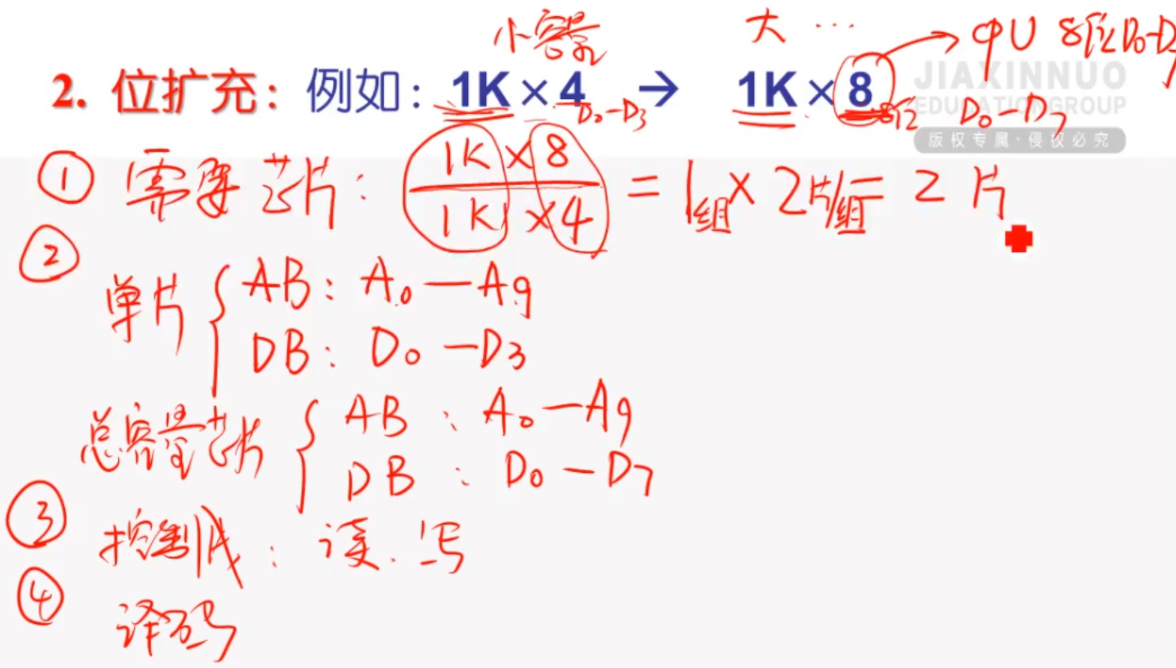 小容量 大 … CPU 8位 D₀-D
2. 位扩充：例如：1K × 4 → 1K × 8
D₀-D₃ 8位 D₀-D₇
JIAXINNUO
EDUCATION GROUP
版权专属·侵权必究
① 需要芯片： 1K×8 / 1K×4 = 1组 × 2片/组 = 2片
②
单片 { AB: A₀—A₉
DB: D₀—D₃
总容量芯片 { AB : A₀—A₉
DB : D₀—D₇
③ 控制线：读.写
④ 译码